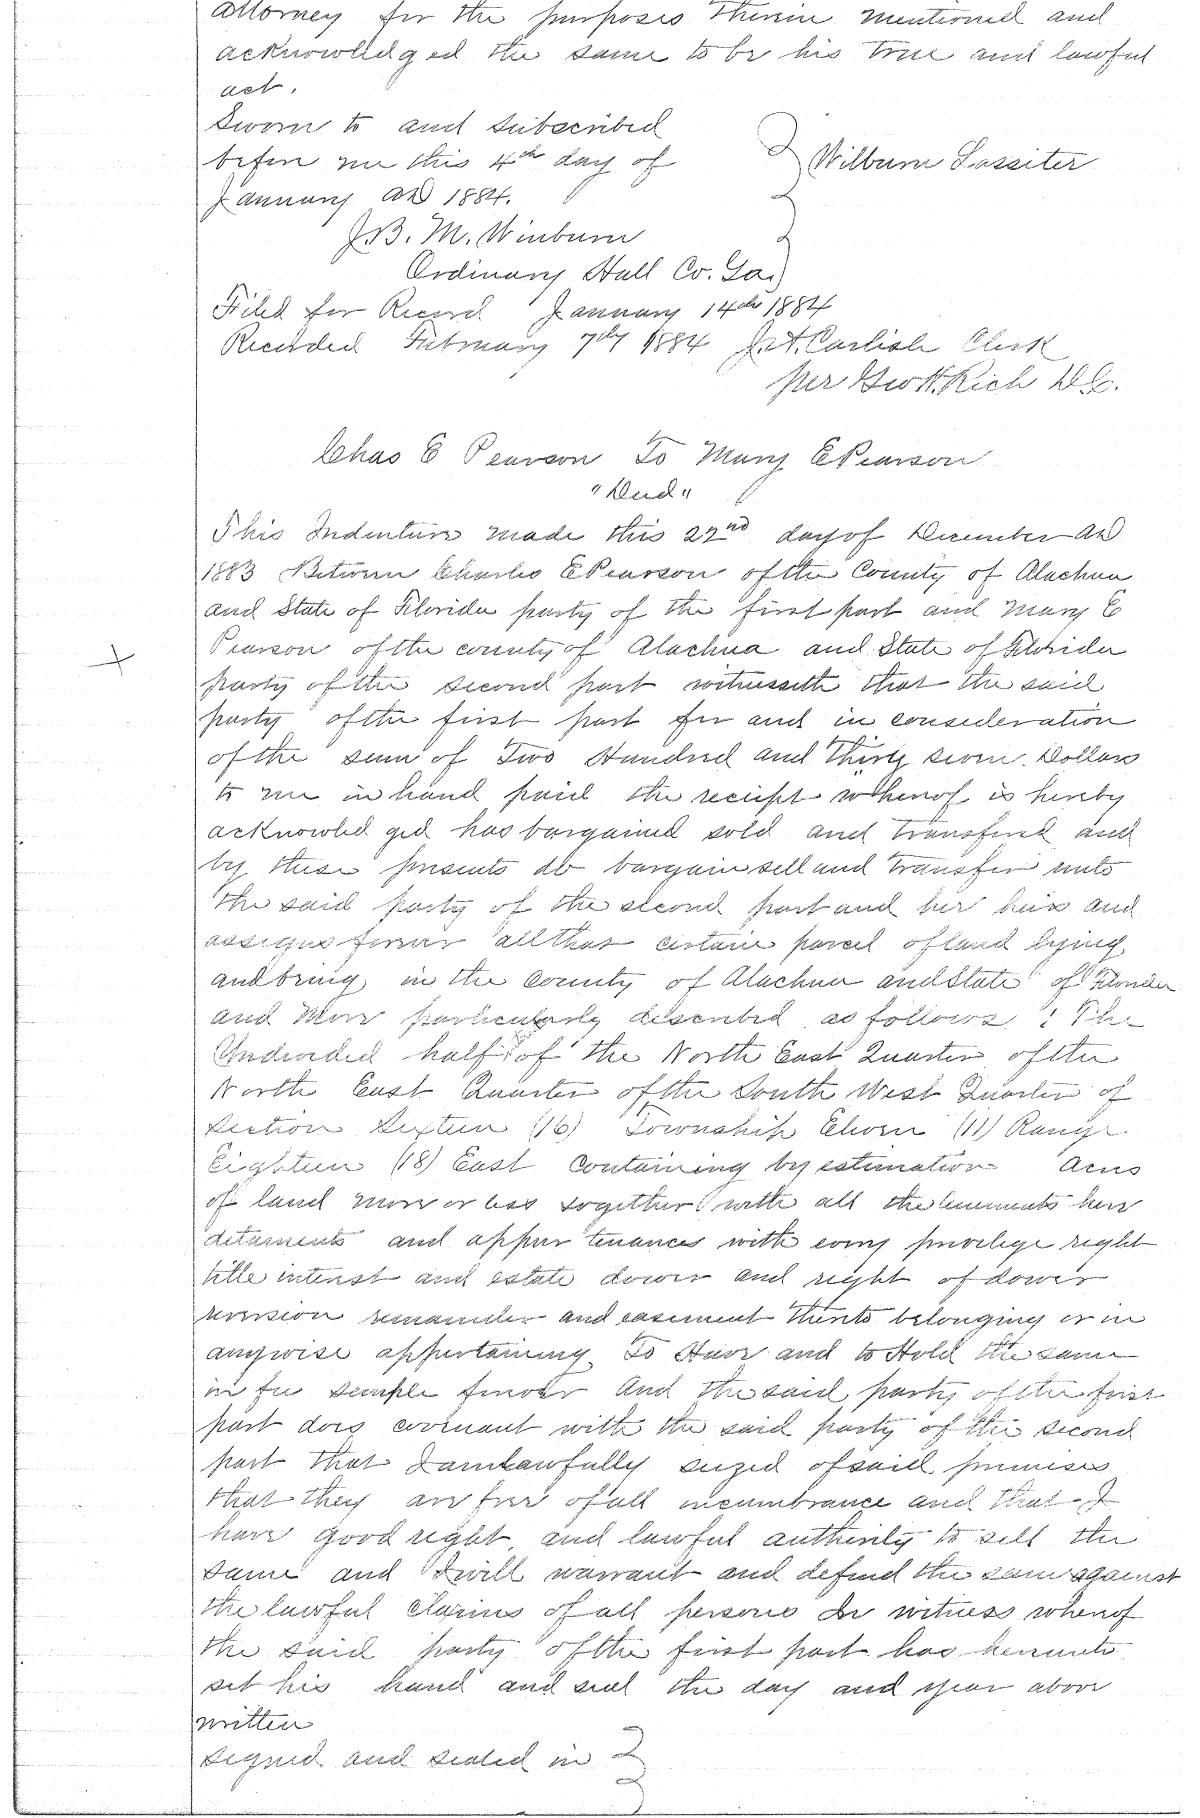 attorney for the purposes therein mentioned and
acknowlledged the same to be his true and lawful
act.
Sworn to and subscribed
before me this 4th day of
January AD 1884.
Wilburn Lassiter
J.B. M. Winburn
Ordinary Hall Co. Ga.
Filed for Record January 14th 1884
Recorded February 7th 1884 J. A. Carlisle Clerk
per Geo H. Rich D.C.
Chas E Pearson To Mary E Pearson
"Deed"
This Indenture made this 22nd day of December AD
1883 Between Charles E Pearson of the County of Alachua
and State of Florida party of the first part and Mary E
Pearson of the county of Alachua and State of Florida
party of the second part witnesseth that the said
party of the first part for and in consideration
of the sum of Two Hundred and Thirty seven Dollars
to me in hand paid the receipt whereof is hereby
acknowledged has bargained sold and transfered and
by these presents do bargain sell and transfer unto
the said party of the second part and her heirs and
assigns forever all that certain parcel of land lying
and being in the County of Alachua and State of Florida
and More particularly described as follows : The
Undivided half of the North East Quarter of the
North East Quarter of the South West Quarter of
Section Sixteen (16) Township Eleven (11) Range
Eighteen (18) East Containing by estimation Acres
of land more or less together with all the tenements here
ditaments and appurtenances with every privilege right
title interest and estate dower and right of dower
reversion remainder and easement thereto belonging or in
anywise appertaining To Have and to Hold the same
in fee semple forever And the said party of the first
part does covenant with the said party of the second
part that I am lawfully seized of said premises
that they are free of all incumbrance and that I
have good right and lawful authority to sell the
same and I will warrant and defend the same against
the lawful claims of all persons In witness whereof
the said party of the first part has hereunto
set his hand and seal the day and year above
written
signed and sealed in